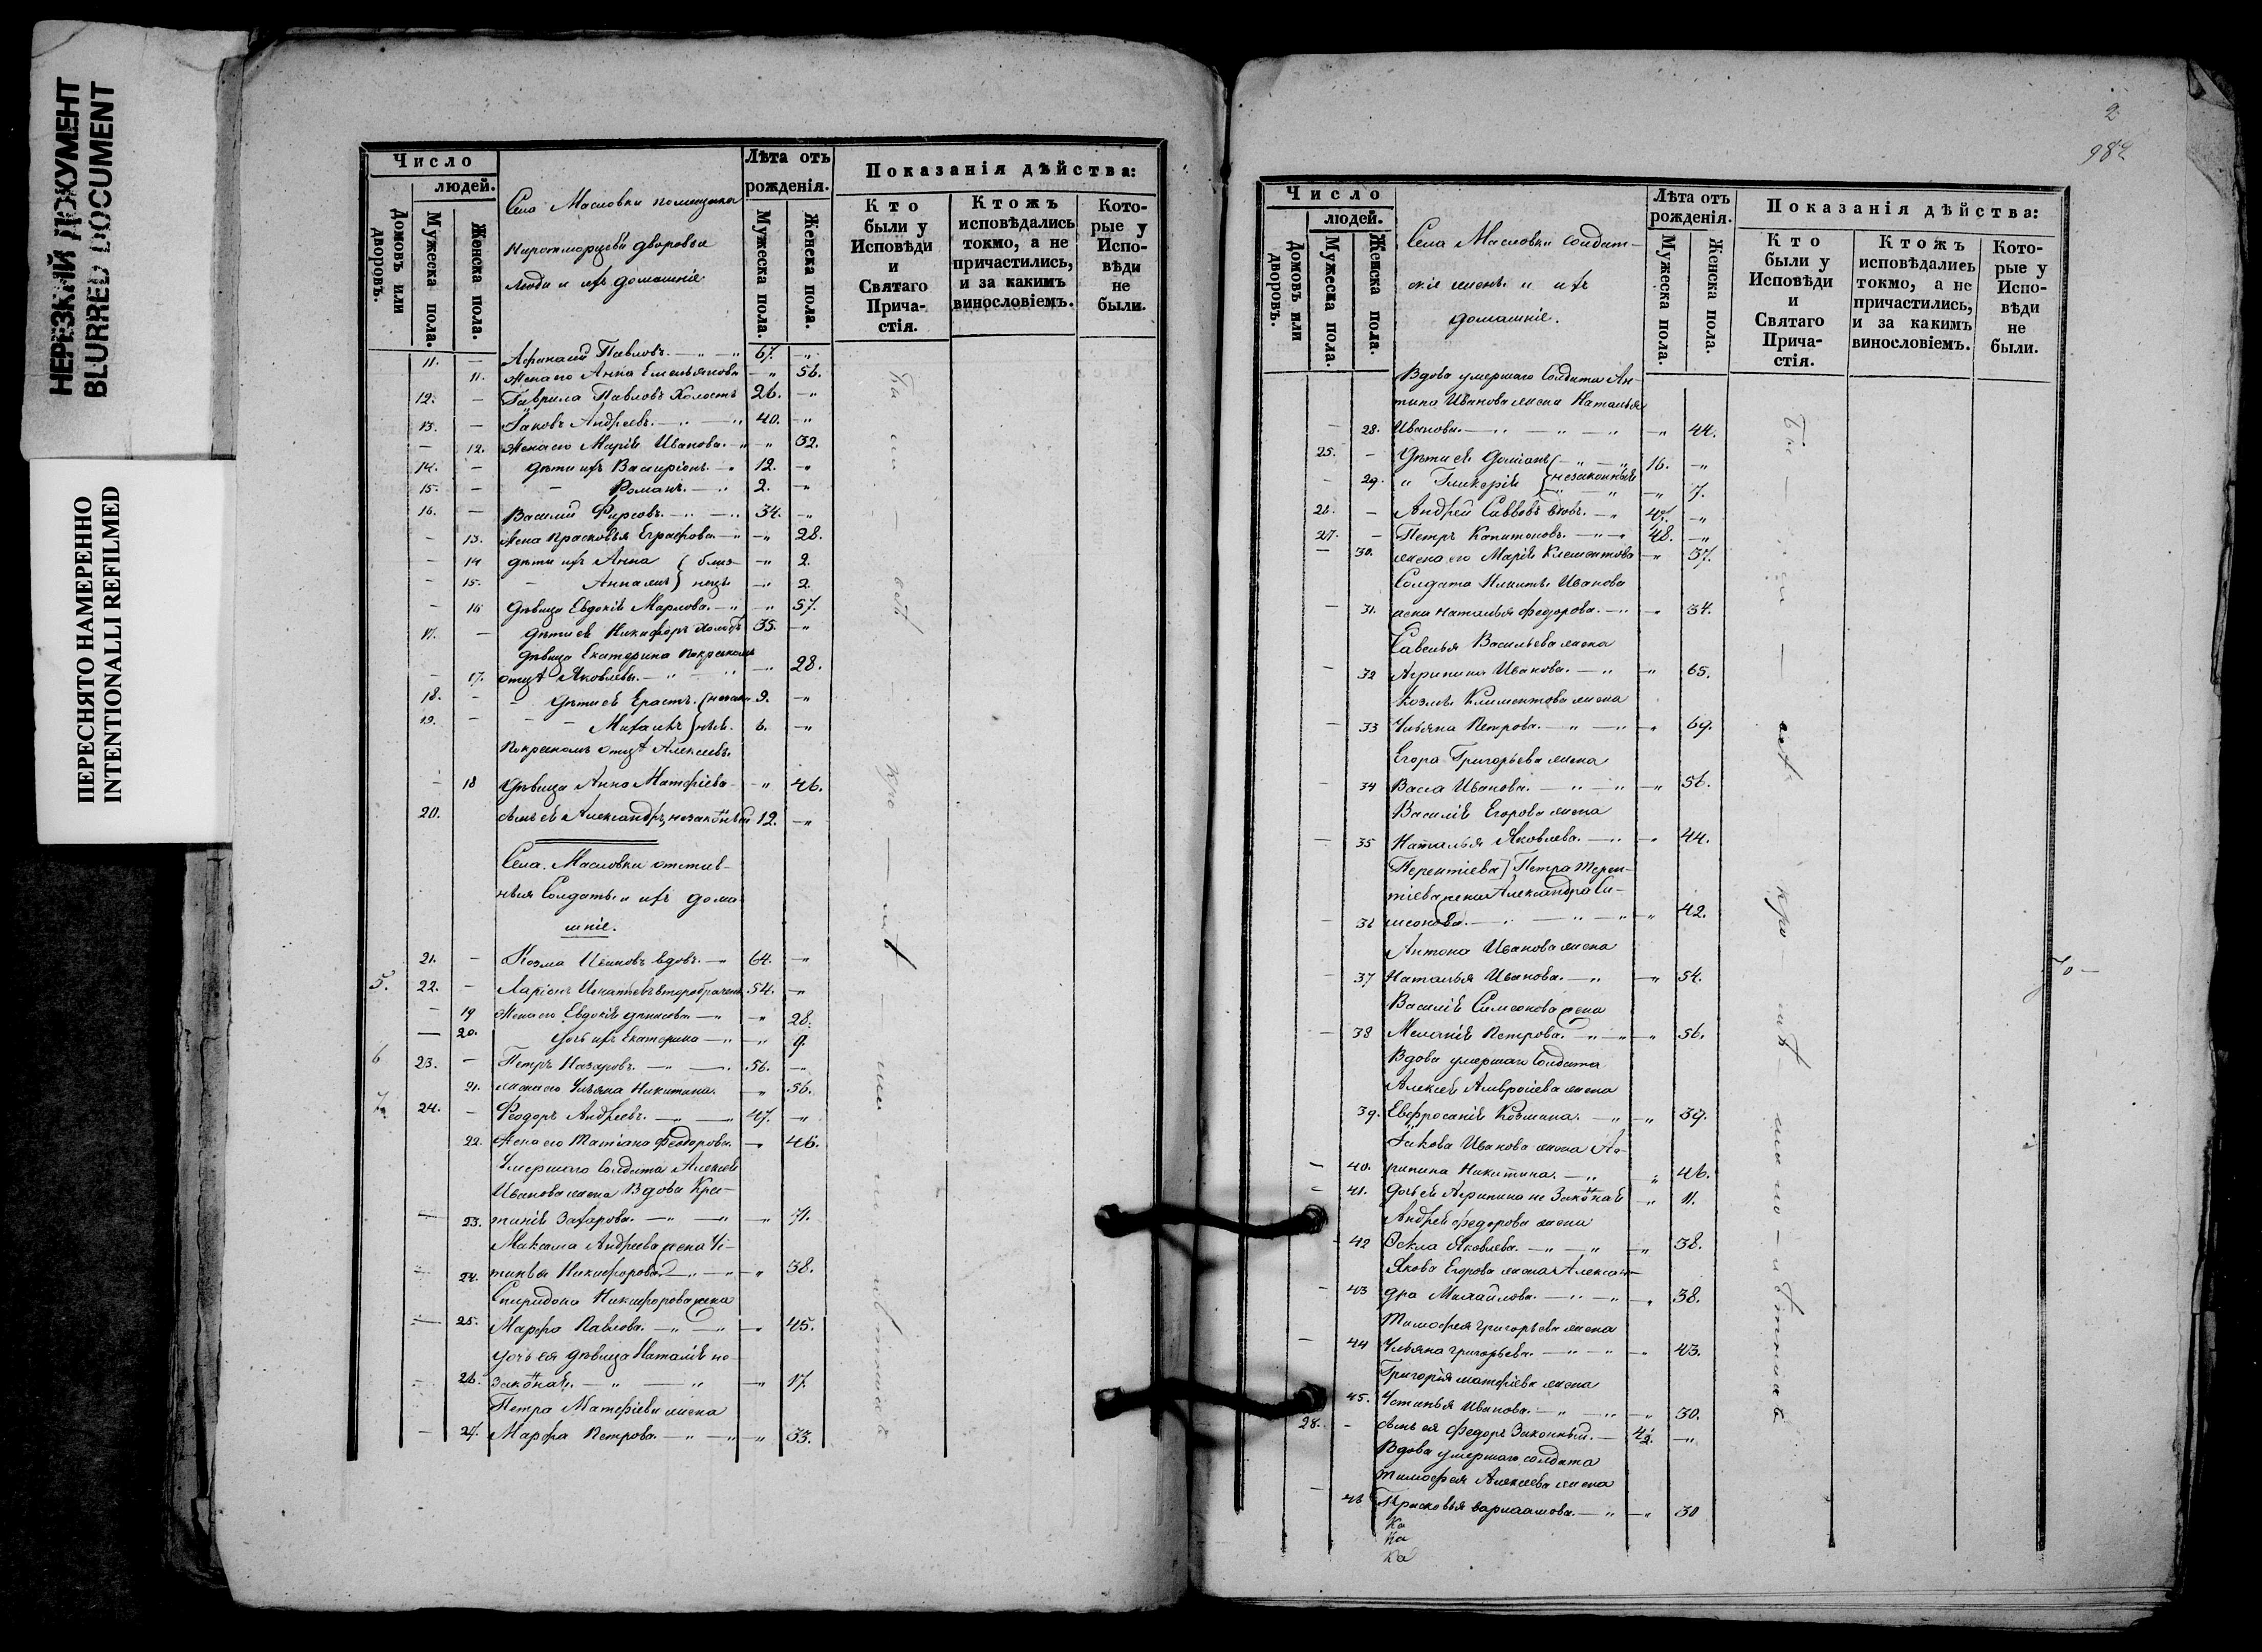 НЕРЕЗКИЙ ДОКУМЕНТ
BLURRED DOCUMENT
ПЕРЕСНЯТО НАМЕРЕННО
INTENTIONALLI REFILMED
Число
людей.
Домовъ или дворовъ.
Мужеска пола.
Женска пола.
Села Масловки помещика
дворовыя
люди и ихъ домашніе
Лѣта отъ рожденія.
Мужеска пола.
Женска пола.
Показанія дѣйства:
Кто были у Исповѣди и Святаго Прича-стія.
Ктожъ исповѣдались токмо, а не причастились, и за какимъ винословіемъ.
Кото-рые у Испо-вѣди не были.
11. — Афанасий Павловъ. — 67. —
11. Жена его Анна Емельянова — 56.
12. — Гаврила Павловъ Холостъ 26. —
13. — Іаковъ Андреевъ. — 40. —
— 12. Жена его Марія Иванова. — 32.
14. — дѣти ихъ — 12. —
15. — — Романъ. — 2. —
16. — Василий Фирсовъ. — 34. —
— 13. Жена Прасковья Евграфова — 28.
— 14 дѣти ихъ Анна близ- — 2.
— 15. — нецы — 2.
— 16 дѣвица Евдокія — 57.
17. — дѣти ея Никифоръ холостъ 35. —
дѣвица Екатерина по крестномъ
— 17. отцѣ Яковлева. — 28.
18. — дѣти ея Ерастъ. 9. —
19. — — 6. —
По крестномъ отцѣ Алексеевъ
— 18 дѣвица Анна Матфіева — 46.
20. сынъ ея Александръ, незаконный 12. —
Села Масловки отстав-
ныя Солдаты и ихъ дома-
шніе.
21. — Козма Ивановъ вдовъ. — 64. —
5. 22. — Ларіонъ Игнатьевъ второбрачен 54. —
— 19 Жена его Евдокія Денисова — 28.
— 20. дочь ихъ Екатерина — 9.
6 23. — Петръ Назаровъ. — 56. —
21. жена его Ульяна Никитина. — 56.
7. 24. — Феодоръ Андреевъ. — 47. —
22. Жена его Татіана Феодорова. — 46.
Умершаго Солдата Алексея
Иванова жена Вдова
— 23. Захарова. — 71.
Максима Андреева жена Ус-
24. тинья Никифорова — 38.
Спиридона Никифорова жена
— 25. Марфа Павлова. — 45.
дочь ея дѣвица Наталія не-
— 26. законная. — 17.
Петра Матфіева жена
— 27. Марфа Петрова. — 33.
2
982
Число
людей.
Домовъ или дворовъ.
Мужеска пола.
Женска пола.
Села Масловки солдат-
скіе жены и ихъ
домашніе.
Лѣта отъ рожденія.
Мужеска пола.
Женска пола.
Показанія дѣйства:
Кто были у Исповѣди и Святаго Прича-стія.
Ктожъ исповѣдались токмо, а не причастились, и за какимъ винословіемъ.
Кото-рые у Испо-вѣди не были.
Вдова умершаго Солдата Ан-
типа Иванова жена Наталья
— 28. Иванова. — 44.
25. — Дѣти ея 16. —
— 29. Гликерія незаконныя — 7.
26. — Андрей Саввовъ вдовъ. — —
27. — Петръ Капитоновъ. — 48. —
— 30. жена его Марія Клементова — 37.
Солдата Никиты Иванова
— 31. жена Наталья Федорова. — 34.
Савелья Васильева жена
— 32 Агрипина Иванова. — 65.
Козмы Климентова жена
— 33 Ульяна Петрова. — 69.
Егора Григорьева жена
— 34 Васса Иванова. — 56.
Василія Егорова жена
— 35 Наталья Яковлева. — 44.
Терентіева Петра Терен-
тіева жена Александра Си-
— 36 меонова. — 42.
Антона Иванова жена
— 37 Наталья Иванова. — 54.
Василія Симеонова жена
— 38 Меланія Петрова. — 56.
Вдова умершаго Солдата
Алексея Амвросіева жена
39. Евфросинія Козмина. — 39.
Іакова Иванова жена Аг-
— 40. рипина Никитина. — 46.
— 41. дочь ея Агрипина не Законная 11.
Андрея Федорова жена
— 42 Фекла Яковлева. — 38.
Якова Егорова жена Алексан-
— 43 дра Михайлова. — 38.
Тимофея Григорьева жена
— 44 Ульяна Григорьева. — 43.
Григорія Матфіева жена
45. Устинья Иванова. — 30.
28. — сынъ ея Федоръ Законный. — —
Вдова умершаго солдата
Тимофея Алексеева жена
— 46 Прасковья Варлаамова. — 30
Ка
Ка
Ка